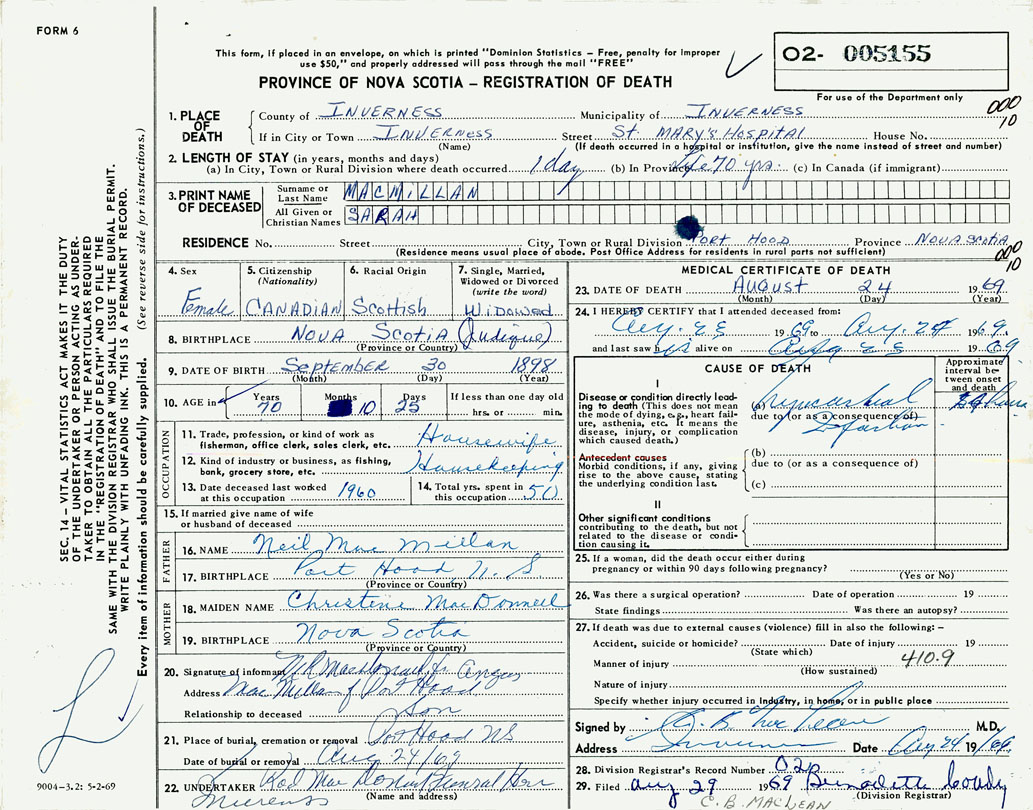 FORM 6
This form, if placed in an envelope, on which is printed "Dominion Statistics – Free, penalty for improper
use $50," and properly addressed will pass through the mail "FREE"
PROVINCE OF NOVA SCOTIA – REGISTRATION OF DEATH
O2- 005155
For use of the Department only
000
10
1. PLACE OF DEATH
County of INVERNESS Municipality of INVERNESS
If in City or Town INVERNESS Street St. MARY'S HOSPITAL House No.
(Name) (If death occurred in a hospital or institution, give the name instead of street and number)
2. LENGTH OF STAY (in years, months and days)
(a) In City, Town or Rural Division where death occurred 1 day (b) In Province life 70 yrs. (c) In Canada (if immigrant)
3. PRINT NAME OF DECEASED
Surname or Last Name MACMILLAN
All Given or Christian Names SARAH
RESIDENCE No. Street City, Town or Rural Division PORT HOOD Province NOVA SCOTIA
(Residence means usual place of abode. Post Office Address for residents in rural parts not sufficient)
000
10
4. Sex Female
5. Citizenship (Nationality) CANADIAN
6. Racial Origin Scottish
7. Single, Married, Widowed or Divorced (write the word) Widowed
8. BIRTHPLACE NOVA SCOTIA (Judique)
(Province or Country)
9. DATE OF BIRTH September 30 1898
(Month) (Day) (Year)
10. AGE in Years 70 Months 10 Days 25 If less than one day old
hrs. or min.
OCCUPATION
11. Trade, profession, or kind of work as
fishermen, office clerk, sales clerk, etc. Housewife
12. Kind of industry or business, as fishing,
bank, grocery store, etc. Housekeeping
13. Date deceased last worked
at this occupation 1960
14. Total yrs. spent in
this occupation 50
15. If married give name of wife
or husband of deceased
FATHER
16. NAME Neil MacMillan
17. BIRTHPLACE Port Hood N.S.
(Province or Country)
MOTHER
18. MAIDEN NAME Christene MacDonnell
19. BIRTHPLACE Nova Scotia
(Province or Country)
20. Signature of informant
Address Port Hood
Relationship to deceased Son
21. Place of burial, cremation or removal Port Hood NS
Date of burial or removal Aug 24/69
22. UNDERTAKER Rod Mac
(Name and address)
MEDICAL CERTIFICATE OF DEATH
23. DATE OF DEATH AUGUST 24 1969
(Month) (Day) (Year)
24. I HEREBY CERTIFY that I attended deceased from:
Aug. 1969 to Aug. 1969.
and last saw alive on Aug 19 69
CAUSE OF DEATH
Approximate interval between onset and death
I
Disease or condition directly leading
to death (This does not mean
the mode of dying, e.g., heart failure,
asthenia, etc. It means the
disease, injury, or complication
which caused death.)
(a) Myocardial
due to (or as a consequence of)
Infarction
Antecedent causes
Morbid conditions, if any, giving
rise to the above cause, stating
the underlying condition last.
(b)
due to (or as a consequence of)
(c)
II
Other significant conditions
contributing to the death, but not
related to the disease or condition
causing it.
25. If a woman, did the death occur either during
pregnancy or within 90 days following pregnancy?
(Yes or No)
26. Was there a surgical operation? Date of operation 19
State findings Was there an autopsy?
27. If death was due to external causes (violence) fill in also the following: –
Accident, suicide or homicide? Date of injury 19
(State which)
Manner of injury 410.9
(How sustained)
Nature of injury
Specify whether injury occurred in Industry, in home, or in public place
Signed by M.D.
Address Inverness Date Aug 24 19/69.
28. Division Registrar's Record Number
29. Filed Aug 29 1969 Bernadette
(Division Registrar)
C. B. MACLEAN
SEC. 14 – VITAL STATISTICS ACT MAKES IT THE DUTY
OF THE UNDERTAKER OR PERSON ACTING AS UNDER-
TAKER TO OBTAIN ALL THE PARTICULARS REQUIRED
IN THE "REGISTRATION OF DEATH" AND TO FILE THE
SAME WITH THE DIVISION REGISTRAR WHO SHALL ISSUE THE BURIAL PERMIT.
WRITE PLAINLY WITH UNFADING INK. THIS IS A PERMANENT RECORD.
Every item of information should be carefully supplied. (See reverse side for instructions.)
9004–3.2: 5-2-69